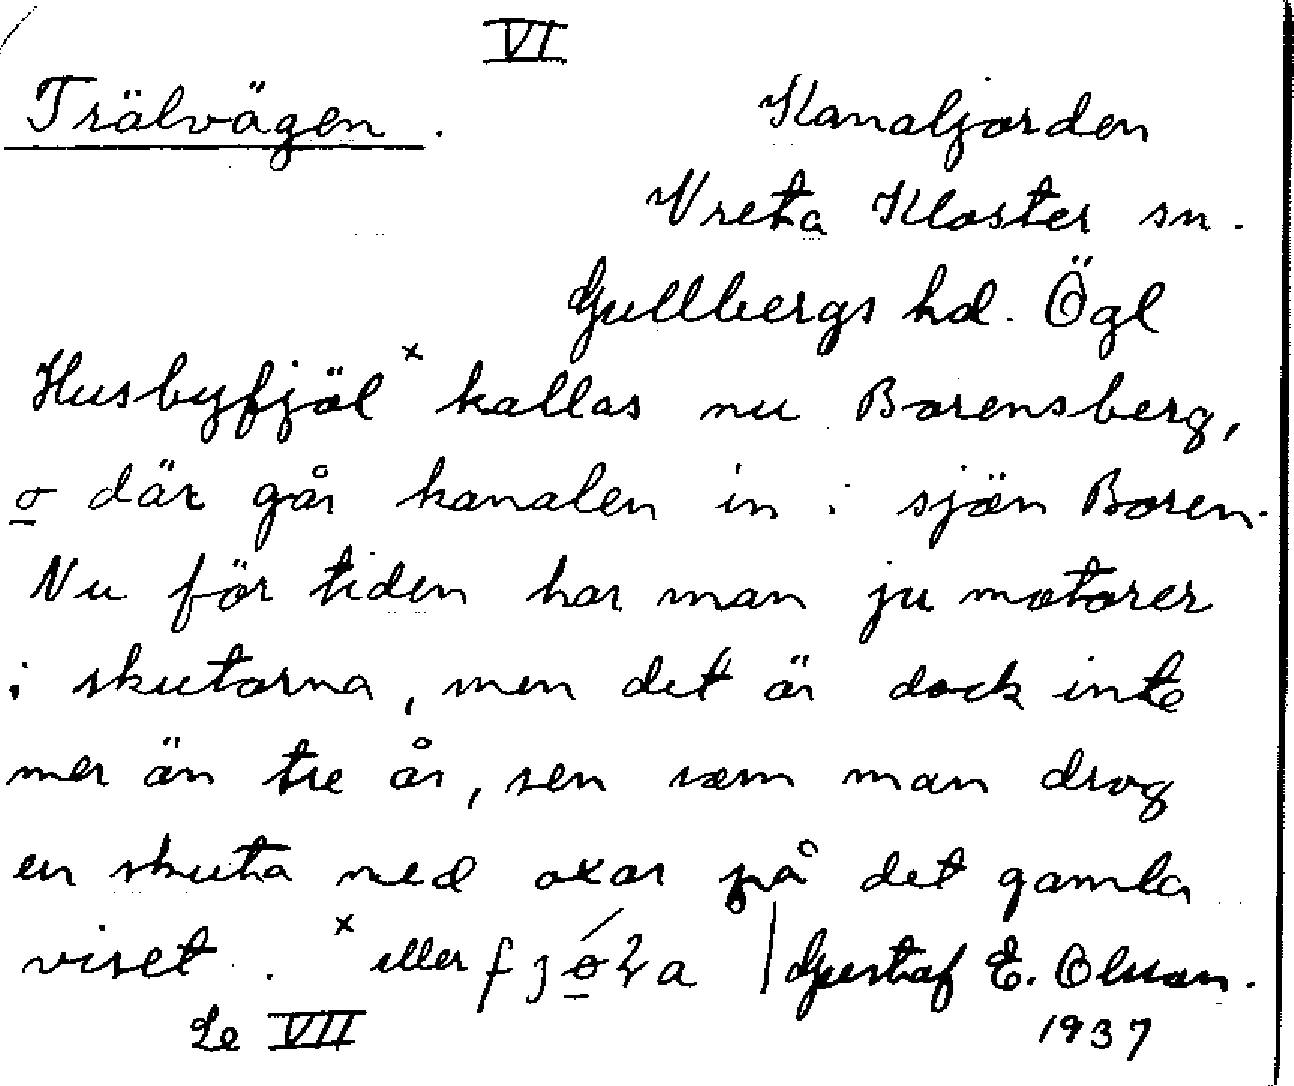 VI
Trälvägen.
Kanaljorden
Vreta Kloster sn.
Gullbergs hd. Ögl
Husbyfjöl x kallas nu Borensberg,
o där går kanalen in i sjön Boren.
Nu för tiden har man ju motorer
i skutorna, men det är dock inte
mer än tre år, sen som man drog
en skuta med oxar på det gamla
viset. x eller | Gustaf E. Olsson.
Se VII
1937